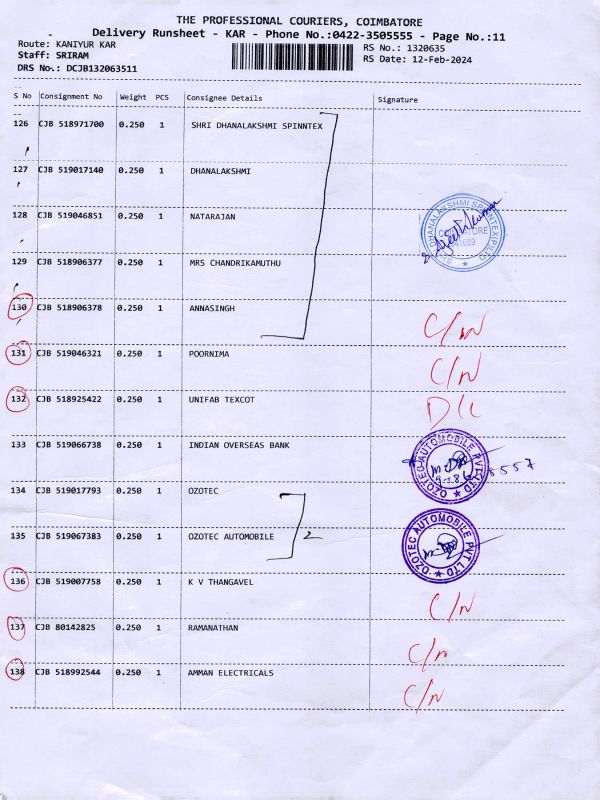 THE PROFESSIONAL COURIERS, COIMBATORE
Delivery Runsheet - KAR - Phone No.:0422-3505555 - Page No.:11
Route: KANIYUR KAR RS No.: 1320635
Staff: SRIRAM RS Date: 12-Feb-2024
DRS No.: DCJB132063511
S No Consignment No Weight PCS Consignee Details Signature
126 CJB 518971700 0.250 1 SHRI DHANALAKSHMI SPINNTEX
127 CJB 519017140 0.250 1 DHANALAKSHMI
128 CJB 519046851 0.250 1 NATARAJAN
129 CJB 518906377 0.250 1 MRS CHANDRIKAMUTHU
130 CJB 518906378 0.250 1 ANNASINGH C/N
131 CJB 519046321 0.250 1 POORNIMA C/N
132 CJB 518925422 0.250 1 UNIFAB TEXCOT D/L
133 CJB 519066738 0.250 1 INDIAN OVERSEAS BANK OZOTEC AUTOMOBILE PVT LTD
134 CJB 519017793 0.250 1 OZOTEC
135 CJB 519067383 0.250 1 OZOTEC AUTOMOBILE 2 OZOTEC AUTOMOBILE PVT LTD
136 CJB 519007758 0.250 1 K V THANGAVEL C/N
137 CJB 80142825 0.250 1 RAMANATHAN C/N
138 CJB 518992544 0.250 1 AMMAN ELECTRICALS C/N